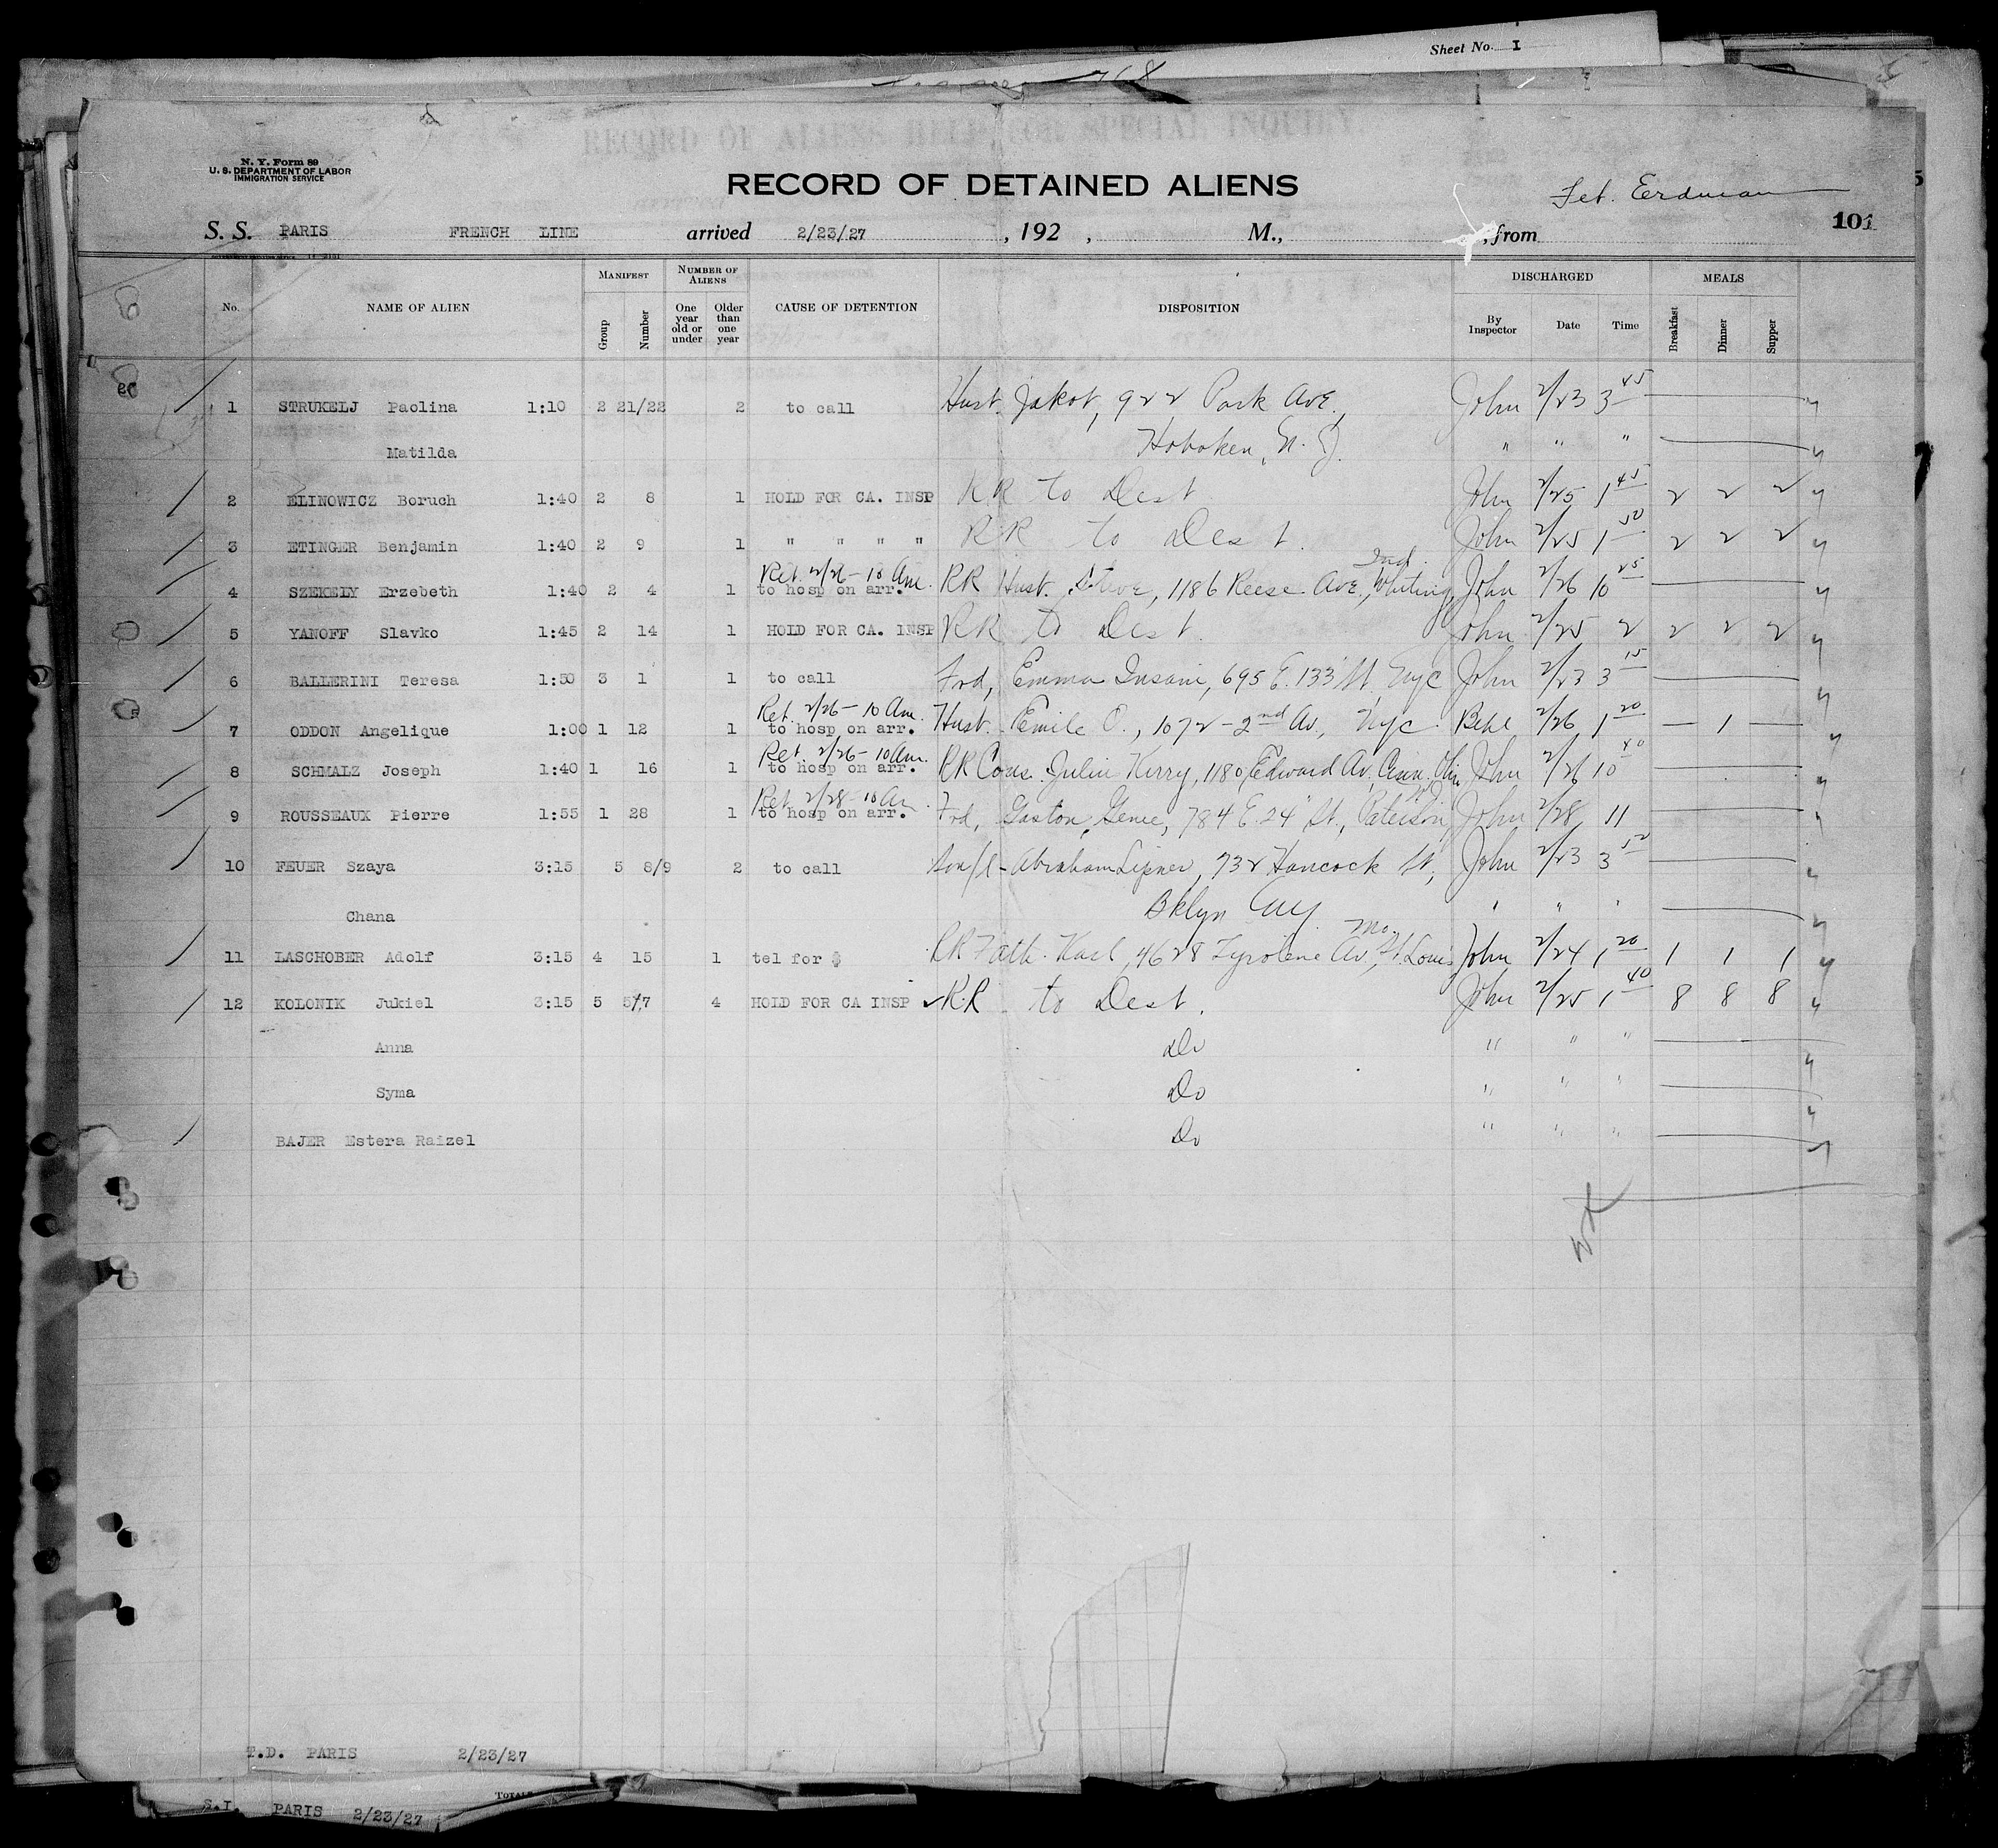 Sheet No. I
768
RECORD OF ALIENS HELD FOR SPECIAL INQUIRY
N. Y. Form 89
U. S. DEPARTMENT OF LABOR
IMMIGRATION SERVICE
RECORD OF DETAINED ALIENS
Erdman
101
S. S. PARIS FRENCH LINE arrived 2/23/27, 192 , M., from
No. NAME OF ALIEN MANIFEST Group Number NUMBER OF ALIENS One year old or under Older than one year CAUSE OF DETENTION DISPOSITION DISCHARGED By Inspector Date Time MEALS Breakfast Dinner Supper
1 STRUKELJ Paolina 1:10 2 21/22 2 to call Husb. Jakob, 922 Park Ave., John 2/23 3 45
Matilda Hoboken, N. J. " " "
2 ELINOWICZ Boruch 1:40 2 8 1 HOLD FOR CA. INSP RR to Dest John 2/25 1 45 2 2 2
3 ETINGER Benjamin 1:40 2 9 1 " " " " RR to Dest. John 2/25 1 50 2 2 2
Ret. 2/26 - 10 Am. Ind.
4 SZEKELY Erzebeth 1:40 2 4 1 to hosp on arr. RR Husb. Steve, 1186 Reese Ave., Whiting, John 2/26 10 25
5 YANOFF Slavko 1:45 2 14 1 HOLD FOR CA. INSP RR to Dest. John 2/25 2 2 2 2
6 BALLERINI Teresa 1:50 3 1 1 to call Frd, Emma Insani, 695 E. 133 St. NYC John 2/23 3 15
Ret. 2/26 - 10 Am.
7 ODDON Angelique 1:00 1 12 1 to hosp on arr. Husb. Emile O., 1072 - 2nd Av., NYC. Behl 2/26 1 20 1
Ret. 2/26 - 10 Am.
8 SCHMALZ Joseph 1:40 1 16 1 to hosp on arr. RR Cous. Julia Kerry, 1180 Edward Av, Cinn. John 2/26 10 40
Ret. 2/28 - 10 Am.
9 ROUSSEAUX Pierre 1:55 1 28 1 to hosp on arr. Frd, Gaston 784 E. 24 St., Paterson, John 2/28 11
10 FEUER Szaya 3:15 5 8/9 2 to call Son/l - Abraham Lipner, 732 Hancock St, John 2/23 3 50
Chana Bklyn NY. " " "
Mo.
11 LASCHOBER Adolf 3:15 4 15 1 tel for $ RR Fath. Karl, 4628 Tyrolene Av., St. Louis John 2/24 1 20 1 1 1
12 KOLONIK Jukiel 3:15 5 5/7 4 HOLD FOR CA INSP RR to Dest. John 2/25 1 40 8 8 8
Anna Do " " "
Syma Do " " "
BAJER Estera Raizel Do " " "
T.D. PARIS 2/23/27
S.I. PARIS 2/23/27